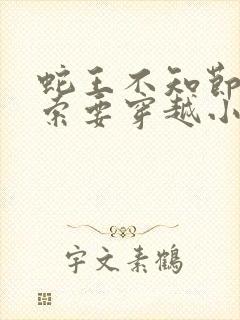 蛇王不知節
索要穿越小
宇文素鶴